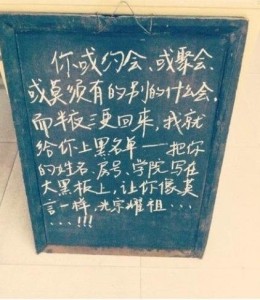 你或约会、或聚会
或莫须有的别的什么会
而半夜三更回来,我就
给你上黑名单——把你
的姓名、房号、学院写在
大黑板上,让你像莫
言一样,光宗耀祖...
...!!!